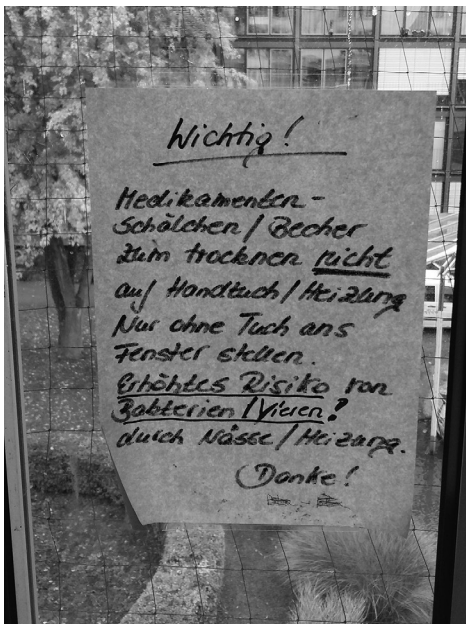 Wichtig!
Medikamenten-
Schälchen / Becher
zum trocknen nicht
auf Handtuch / Heizung
Nur ohne Tuch ans
Fenster stellen.
Erhöhtes Risiko von
Bakterien / Vieren!
durch Nässe / Heizung.
Danke!